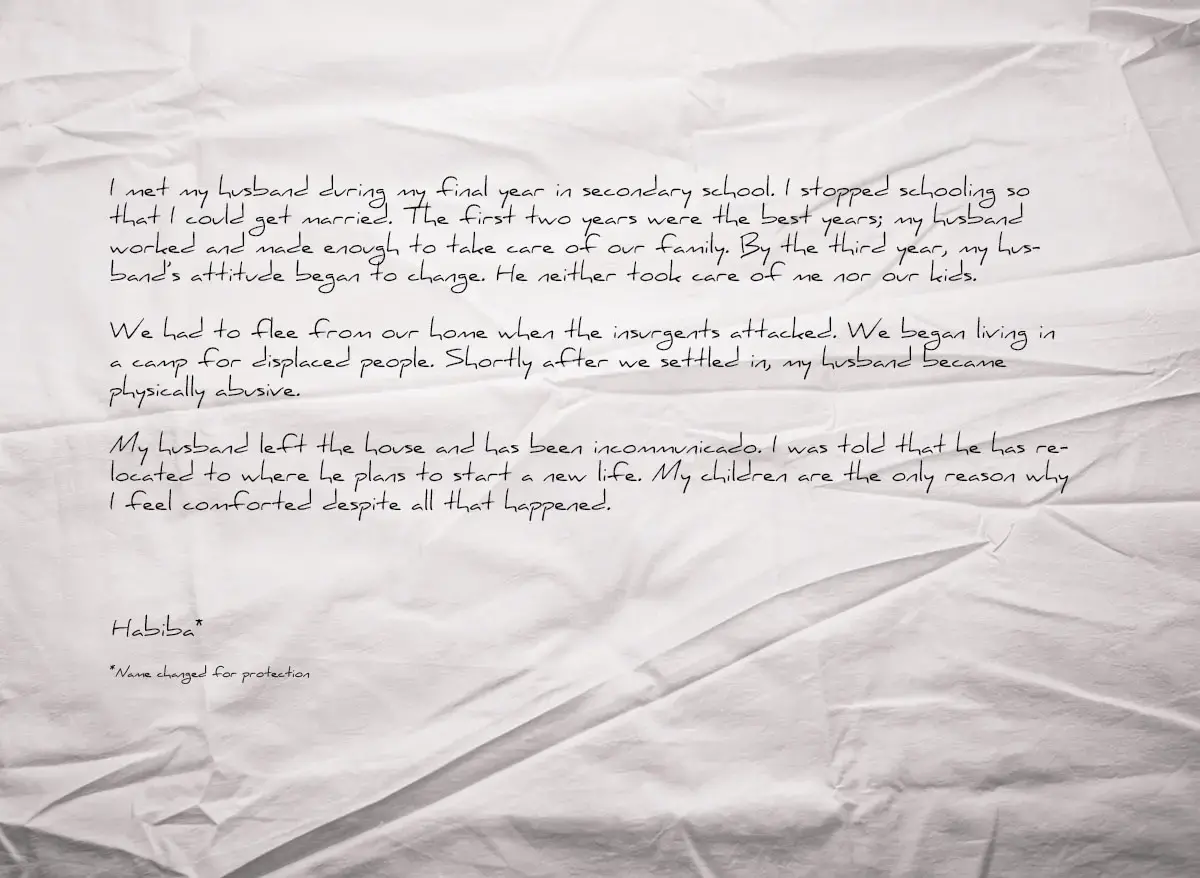 I met my husband during my final year in secondary school. I stopped schooling so
that I could get married. The first two years were the best years; my husband
worked and made enough to take care of our family. By the third year, my hus-
band's attitude began to change. He neither took care of me nor our kids.
We had to flee from our home when the insurgents attacked. We began living in
a camp for displaced people. Shortly after we settled in, my husband became
physically abusive.
My husband left the house and has been incommunicado. I was told that he has re-
located to where he plans to start a new life. My children are the only reason why
I feel comforted despite all that happened.
Habiba*
*Name changed for protection